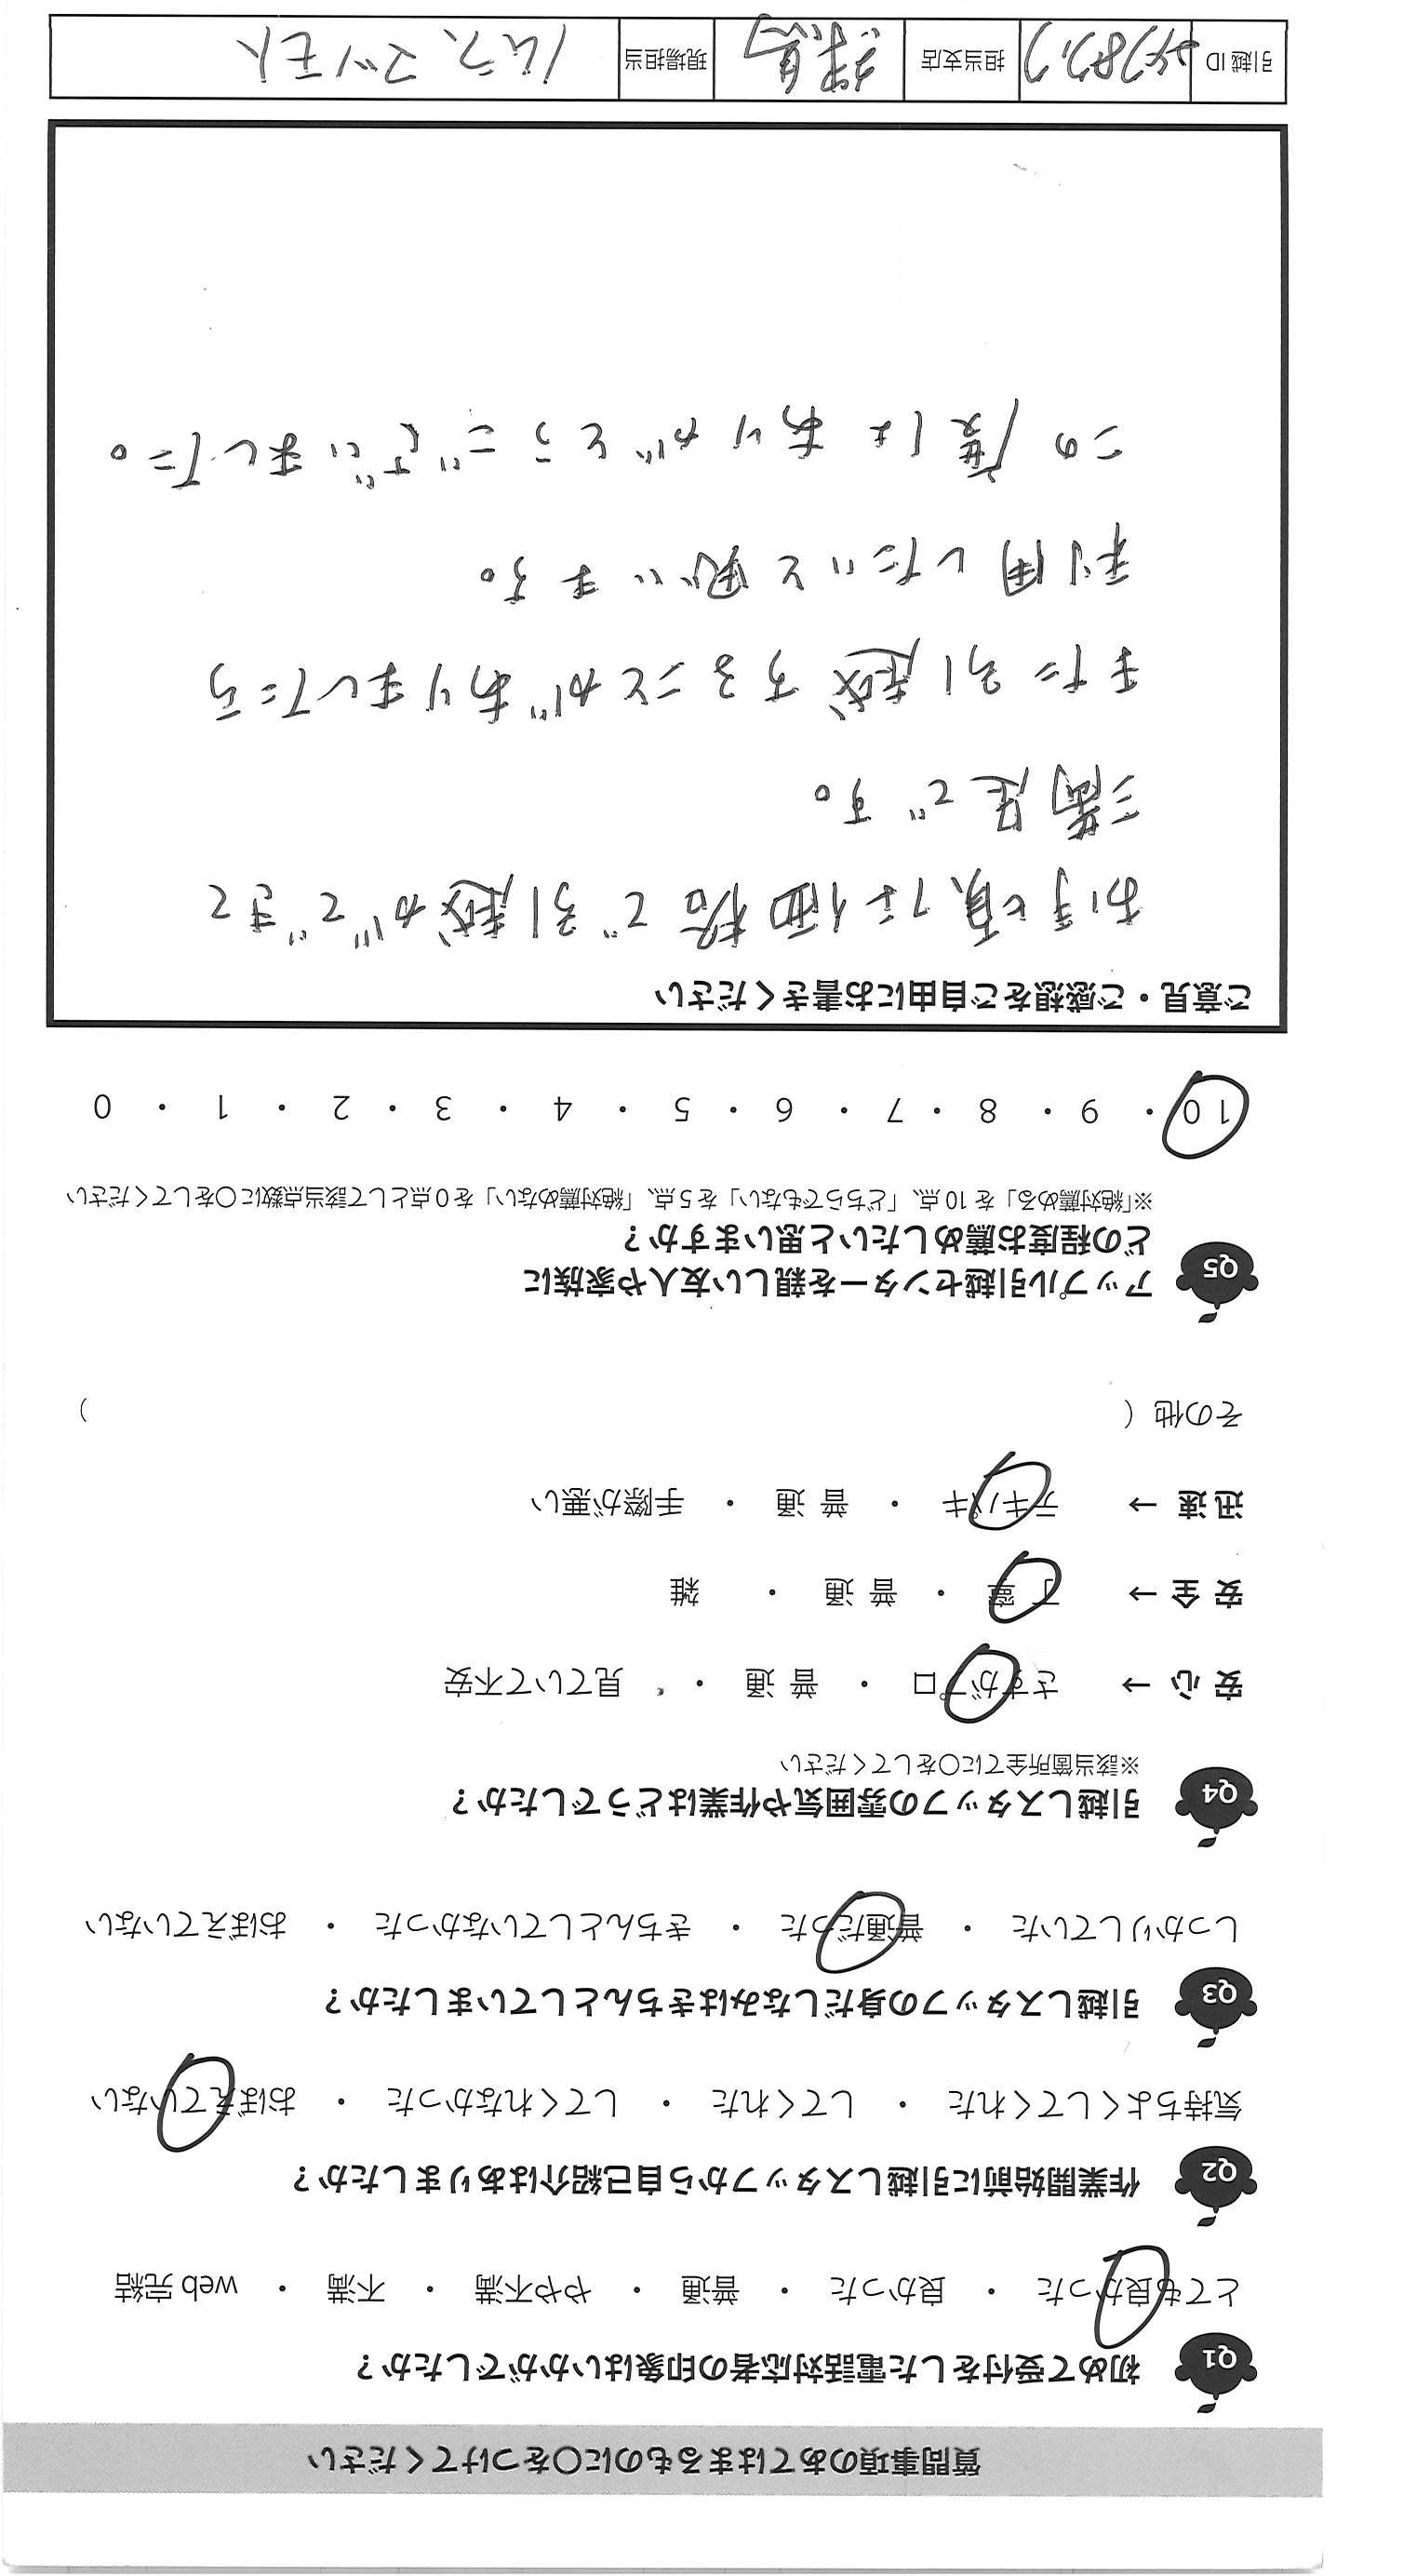 質問事項のあてはまるものに○をつけてください
Q1 初めて受付をした電話対応者の印象はいかがでしたか？
とても良かった ・ 良かった ・ 普通 ・ やや不満 ・ 不満 ・ web 完結
Q2 作業開始前に引越しスタッフから自己紹介はありましたか？
気持ちよくしてくれた ・ してくれた ・ してくれなかった ・ おぼえていない
Q3 引越しスタッフの身だしなみはきちんとしていましたか？
しっかりしていた ・ 普通だった ・ きちんとしていなかった ・ おぼえていない
Q4 引越しスタッフの雰囲気や作業はどうでしたか？
※該当箇所全てに○をしてください
安 心 → さすがプロ ・ 普 通 ・ 見ていて不安
安 全 → 丁 寧 ・ 普 通 ・ 雑
迅 速 → テキパキ ・ 普 通 ・ 手際が悪い
その他（ ）
Q5 アップル引越センターを親しい友人や家族に
どの程度お薦めしたいと思いますか？
※「絶対薦める」を 10 点、「どちらでもない」を 5 点、「絶対薦めない」を 0 点として該当点数に○をしてください
10 ・ 9 ・ 8 ・ 7 ・ 6 ・ 5 ・ 4 ・ 3 ・ 2 ・ 1 ・ 0
ご意見・ご感想をご自由にお書きください
お手頃な価格で引越ができて
満足です。
また引越することがありましたら
利用したいと思います。
この度はありがとうございました。
引越 ID 担当支店 練馬 現場担当 マツモト